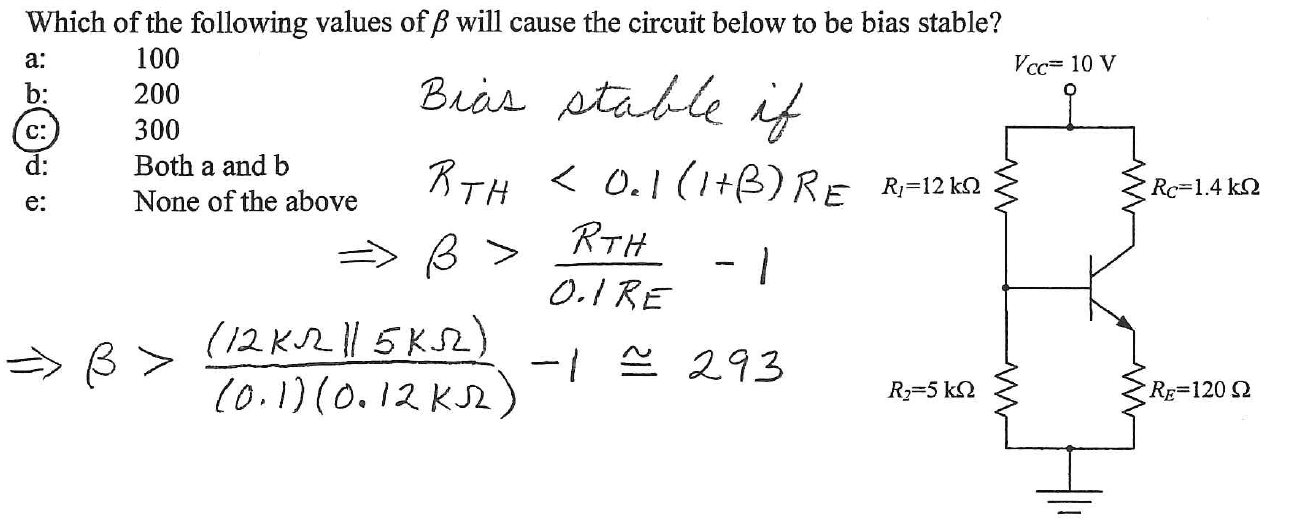 Which of the following values of β will cause the circuit below to be bias stable?
a: 100
b: 200
c: 300
d: Both a and b
e: None of the above
Bias stable if
RTH < 0.1 (1+β) RE
⇒ β > RTH / 0.1 RE - 1
⇒ β > (12KΩ || 5KΩ) / (0.1)(0.12KΩ) - 1 ≅ 293
VCC= 10 V
R1=12 kΩ
RC=1.4 kΩ
R2=5 kΩ
RE=120 Ω